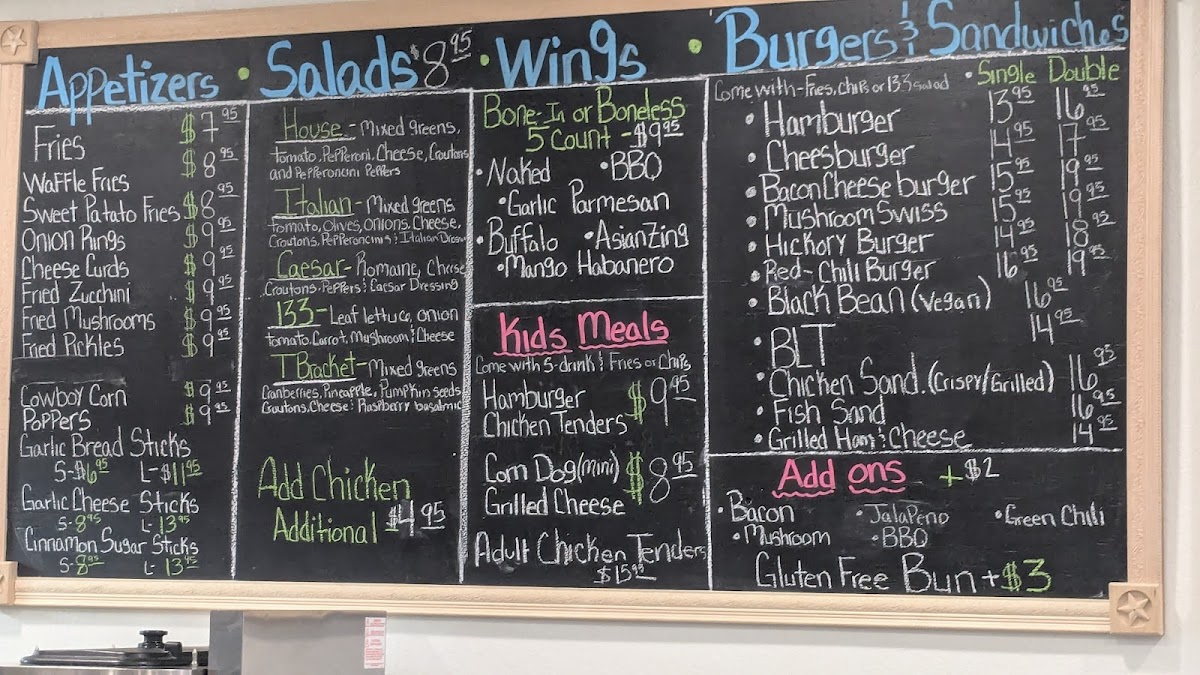 Appetizers • Salads $8.95 • Wings • Burgers & Sandwiches
Fries $7.95
Waffle Fries $8.95
Sweet Patato Fries $8.95
Onion Rings $9.95
Cheese Curds $9.95
Fried Zucchini $9.95
Fried Mushrooms $9.95
Fried Pickles $9.95
Cowboy Corn $9.95
Poppers $9.95
Garlic Bread Sticks
S-$6.95 L-$11.95
Garlic Cheese Sticks
S-8.95 L-13.95
Cinnamon Sugar Sticks
S-8.95 L-13.95
House - Mixed greens,
tomato, Pepperoni, Cheese, Croutons
and Pepperoncini Peppers
Italian - Mixed greens
tomato, Olives, Onions, Cheese,
Croutons, Pepperoncinis & Italian Dressing
Caesar - Romaine, Cheese
Croutons, Peppers & Caesar Dressing
133 - Leaf lettuce, onion
tomato, Carrot, Mushroom & Cheese
T Bracket - Mixed greens
Cranberries, Pineapple, Pumpkin seeds
Croutons, Cheese & Raspberry basalmic
Add Chicken
Additional $4.95
Bone-In or Boneless
5 Count - $9.95
• Naked • BBQ
• Garlic Parmesan
• Buffalo • Asian Zing
• Mango Habanero
Kids Meals
Come with S-drink & Fries or Chips
Hamburger
Chicken Tenders $9.95
Corn Dog (mini)
Grilled Cheese $8.95
Adult Chicken Tenders
$15.95
Come with-Fries, Chips or 133 Salad • Single Double
• Hamburger 13.95 16.95
• Cheesburger 14.95 17.95
• Bacon Cheese burger 15.95 19.95
• Mushroom Swiss 15.95 19.95
• Hickory Burger 14.95 18.95
• Red-Chili Burger 16.95 19.95
• Black Bean (Vegan) 16.95
• BLT 14.95
• Chicken Sand. (Crispy/Grilled) 16.95
• Fish Sand 16.95
• Grilled Ham & Cheese 14.95
Add ons +$2
• Bacon • Jalapeno • Green Chili
• Mushroom • BBQ
Gluten Free Bun +$3